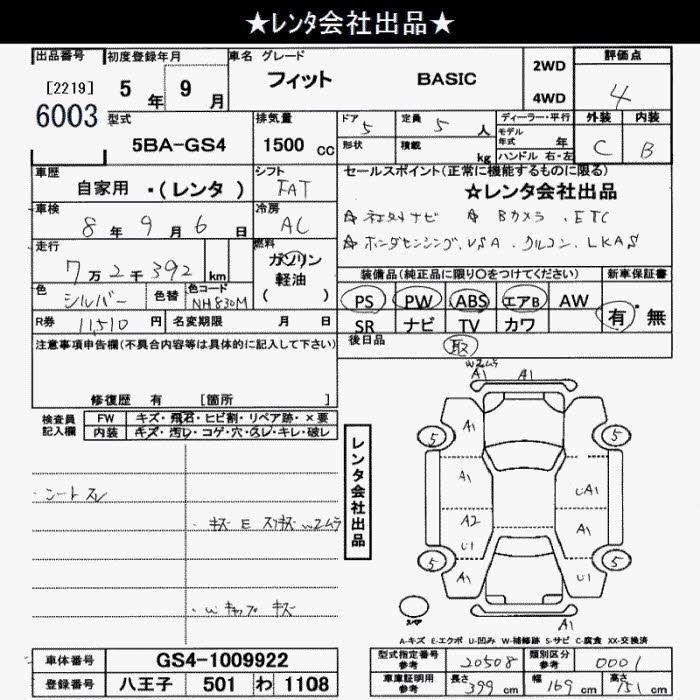 ★レンタ会社出品★
出品番号 初度登録年月 車名 グレード 評価点
[2219] 5 年 9 月 フィット BASIC 2WD 4WD 4
6003
型式 排気量 ドア 5 定員 5 人 ディーラー・平行 外装 内装
5BA-GS4 1500 cc 形状 積載 kg モデル年式 年 C B
ハンドル 右・左
車歴 シフト セールスポイント(正常に機能するものに限る)
自家用 ・(レンタ ) FAT ★レンタ会社出品
車検 冷房 ☆ 社外ナビ ☆ Bカメラ . ETC
8 年 9 月 6 日 AC ☆ ホンダセンシング. VSA . クルコン. LKAS
走行 燃料
7 万 2 千 392 km ガソリン 装備品(純正品に限り○をつけてください) 新車保証書
色 シルバー 色替 色コード NH830M 軽油 PS PW ABS エアB AW 有・無
( ) SR ナビ TV カワ
R券 11,510 円 名変期限 月 日 後日品
取
注意事項申告欄(不具合内容等は具体的に記入して下さい)
修復歴 有 [箇所 ]
検査員記入欄 FW キズ・飛石・ヒビ割・リペア跡・×要
内装 キズ・汚レ・コゲ・穴・スレ・キレ・破レ
W2ムラ
A1 A1
5 A1 5
A1 UA1
A2 A1
U1
5 A1 U1 5
A1
・シート スレ
レンタ会社出品
・Wキャップ キズ
A-キズ E-エクボ U-凹み W-補修跡 S-サビ C-腐食 XX-交換済
車体番号 GS4-1009922
登録番号 八王子 501 わ 1108
型式指定番号 参考 20508 類別区分 参考 0001
車庫証明用 参考 長さ 399 cm 幅 169 cm 高さ 151 cm